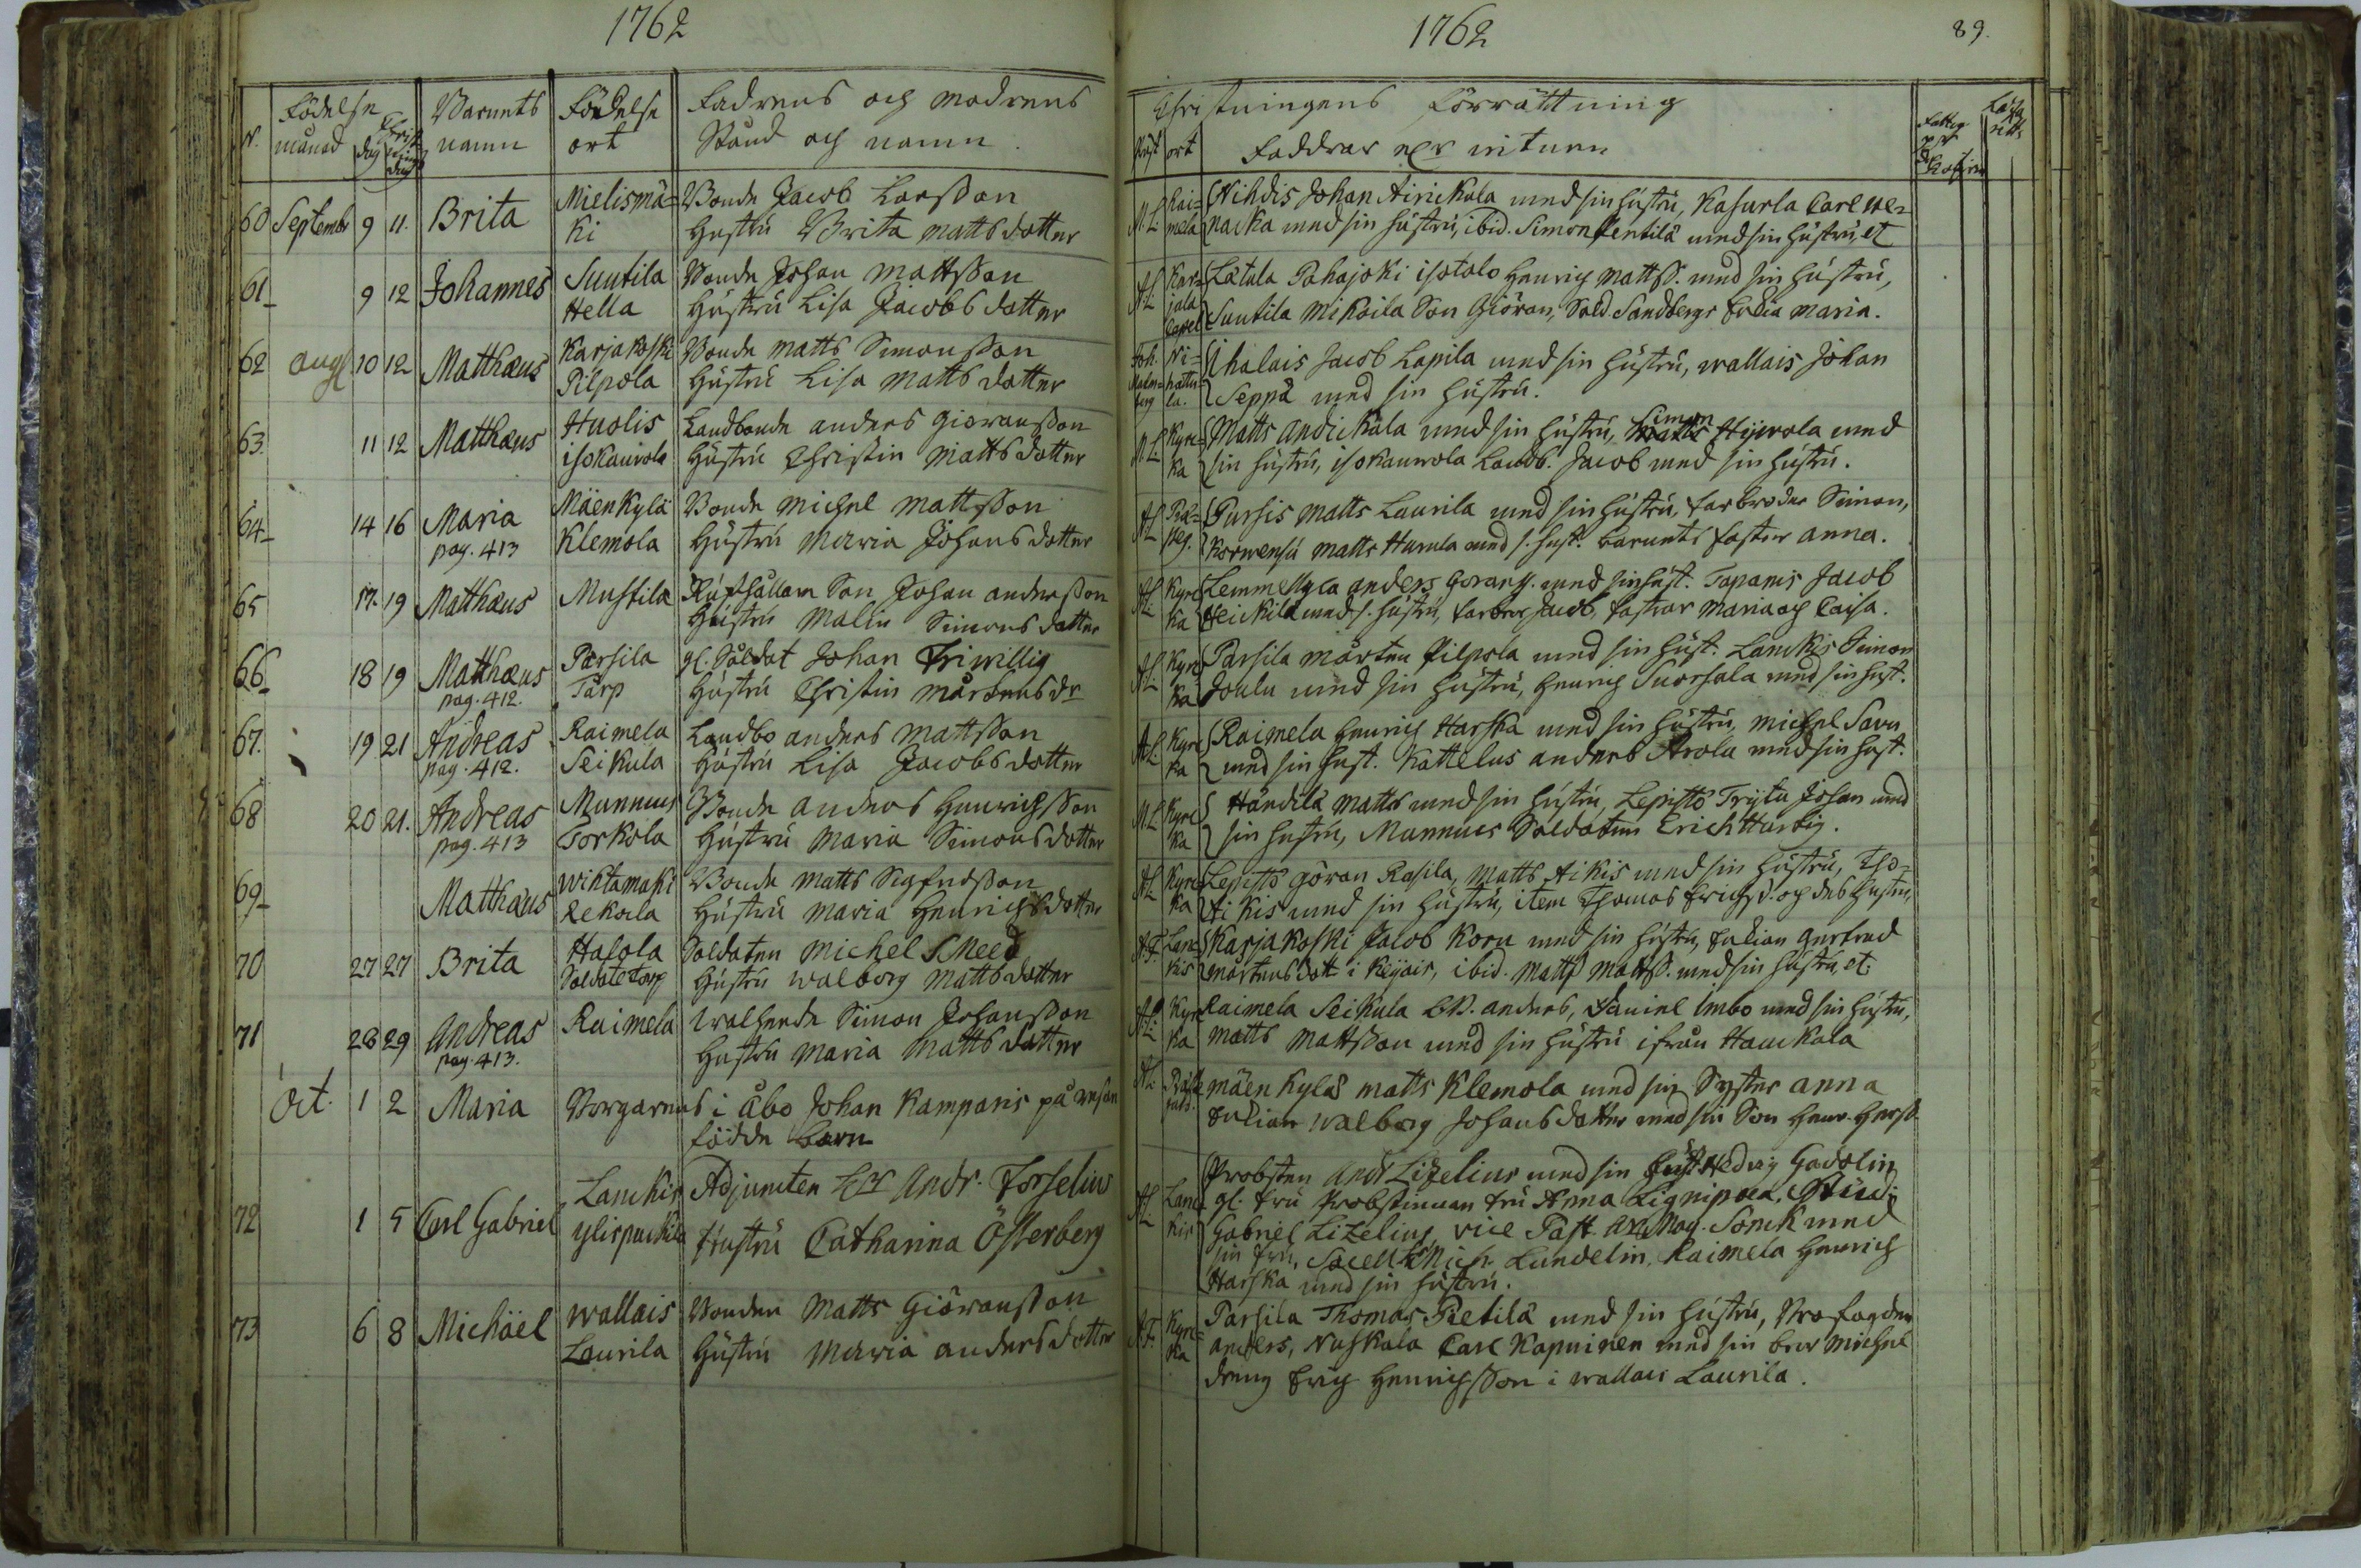 1762
N. Födelse månad dag Christnings dag
Barnets namn
Födelse ort
Fadrens och modrens
Stånd och namn
60 Septembr 9 11. Brita Mielismä= Bonde Jacob Larsson
ki Hustru Brita Matts dotter
61 9 12 Johannes Suutila Bonde Johan Mattsson
Hella Hustru Lisa Jacobs dotter
62 aug 10 12 Matthæus Karjakoski Bonde Matts Simonsson
Pilpola Hustru Lisa Matts dotter
63. 11 12 Matthæus Huolis Landbonde anders Giöransson
isokauwola Hustru Christin Matts dotter
64 14 16 Maria Mäenkylä Bonde Michel Mattsson
pag. 413 Klemola Hustru Maria Johans dotter
65 17. 19 Matthæus Mustila Rusthållare Son Johan andersson
Hustru Malin Simons dotter
66 18 19 Matthæus Parsila gl. Soldat Johan Friwillig
pag. 412. Torp Hustru Christin Mårtens dr
67. 19 21 Andreas Raimela Landbo anders Mattsson
pag. 412. Seikula Hustru Lisa Jacobs dotter
68 20 21. Andreas Munnus Bonde anders Henrichsson
pag. 413 Torkola Hustru Maria Simons dotter
69 Matthæus Wihtamaki Bonde Matts Sigfredsson
Rekola Hustru Maria Henrichs dotter
70 27 27 Brita Halola Soldaten Michel Smeed
Soldatetorp Hustru Walborg Matts dotter
71 28 29 Andreas Raimela Simon Johansson
pag. 413. Hustru Maria Matts dotter
Oct. 1 2 Maria Borgarens i Åbo Johan Kamparis på resan
födde barn
72 1 5 Carl Gabriel Lauckis Adjuncten Hr Andr. Forselius
ylispuckila Hustru Catharina Österberg
73 6 8 Michäel Wallais Bonden Matts Giöransson
Laurila Hustru Maria anders dotter
1762 89.
Christningens Förrättning
Präst ort Faddrar eller witnen
M.L. Rai= Nihdis Johan Airickala med sin hustru, Kasurla Carl He=
mela nacka med sin hustru, ibid. Simon Pentilä med sin hustru, et
Kar= Lätula Pahajoki isotalo Henrich Mattss. med sin hustru,
jala Capel Suutila Mickoila Son Giöran, Sold. Sandbergs Maria.
Joh. Malmberg Ni= Ihalais Jacob Lapila med sin hustru, Wallais Johan
hattula. Seppä med sin hustru.
M.L. Kyrc= Matts Andickala med sin hustru, Simon Hijwola med
ka sin hustru, isokauwola Landb. Jacob med sin hustru.
Pursis Matts Laurila med sin hustru, farbroder Simon,
Korwensu Matts Hurula med s. hust. barnets faster Anna.
Kyrc Lemmellyca anders Göranss. med sin hust. Tapanis Jacob
ka Heickilä med s. hustru, farbror Jacob, fastrar Maria och Caisa.
Kyrc Parsila Mårten Pilpola med sin hust. Lauckis Simon
ka Joulu med sin hustru, Henrich Suorsala med sin hust.
Kyrc Raimela Henrich Harska med sin hustru, Michel Savu
ka med sin hust. Kattelus anders Arola med sin hust.
M.L. Kyrc Händilä Matts med sin hustru, Lepistö Trytu Johan med
ka sin hustru, Munnus Soldaten Erich Hurtig.
Kyrc Lepistö Göran Rasila, Matts Aikis med sin hustru, Tho=
ka Aikis med sin hustru, item Thomas Erichss. och dess hustru,
A.F. Lauc= Karjakoski Jacob Koru med sin hustru, Enkian Gertrud
kis Mårtens dott i Keijais, ibid. Matts Mattss. med sin hustru, et.
Kyrc Raimela Seikula anders, Daniel Imbo med sin hustru,
ka Matts Mattsson med sin hustru ifrån Hauckala
Mäenkyläs Matts Klemola med sin Syster Anna
Enkian Walborg Johans dotter med sin Son Henr. Henss.
Probsten And. Lizelius med sin hust. Hedvig Gadolin,
Lauc gl. Fru Probstinnan Fru Anna Lignipæa, Stud.
kis Gabriel Lizelius, vice Past. Mag. Sonck med
sin fru, Sacell. Mich. Lundelin, Raimela Henrich
Harska med sin hustru.
A.F. Kyrc= Parsila Thomas Pietilä med sin hustru, Brofogden
ka anders, Nuskala Carl Kapuinen med sin bror Michel
dreng Erich Henrichsson i Wallais Laurila.